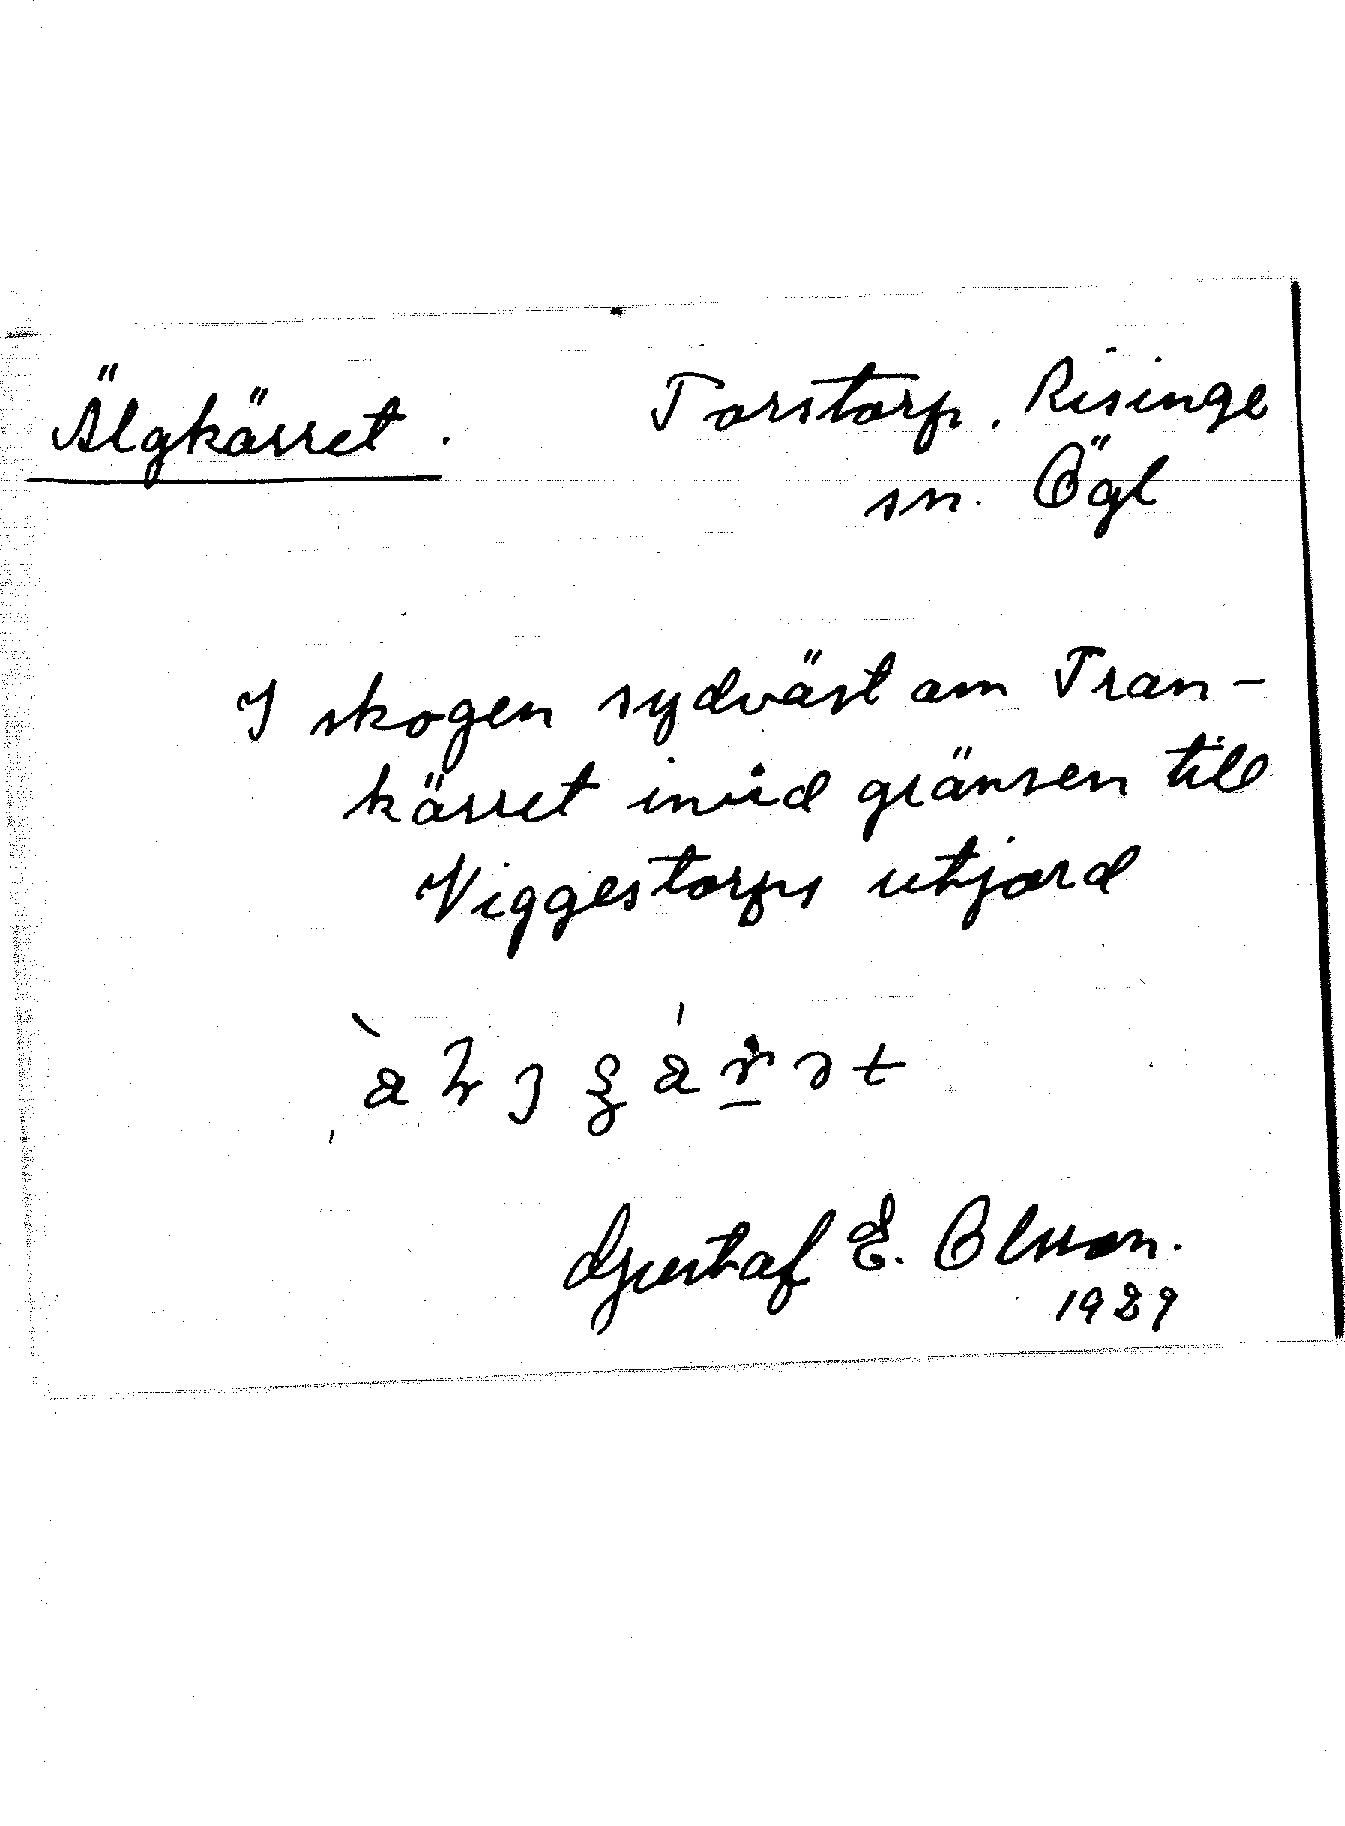 Älgkärret. Torstorp. Risinge
sn. Ögl
I skogen sydväst om Tran-
kärret invid gränsen till
Viggestorps utjord
Gustaf E. Olsson.
1929